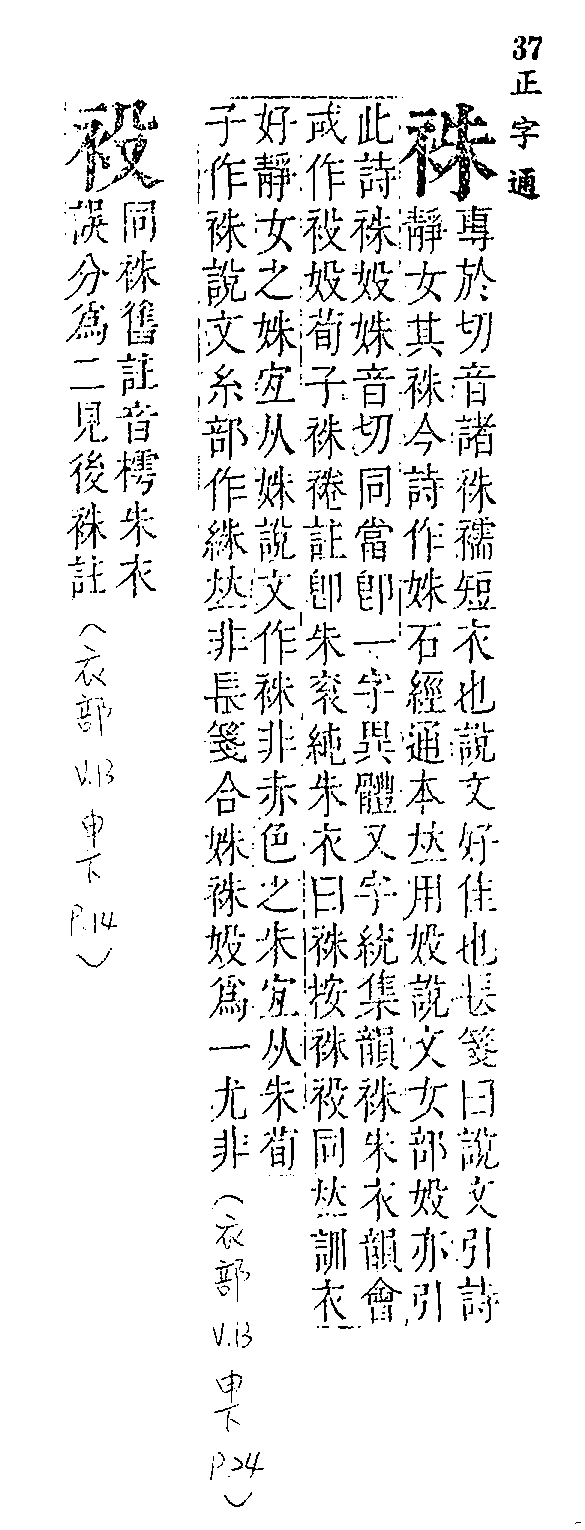 37 正字通
袾
專於切音諸袾襦短衣也說文好佳也長箋曰說文引詩
靜女其袾今詩作姝石經通本𠀤用㚫說文女部㚫亦引
此詩袾㚫姝音切同當卽一字異體又字統集韻袾朱衣韻會
或作䘠㚫荀子袾裷註卽朱衮純朱衣曰袾按袾䘠同𠀤訓衣
好靜女之姝宜从姝說文作袾非赤色之朱宜从朱荀
子作袾說文糸部作絑𠀤非長箋合姝袾㚫爲一尤非(衣部 V.13 申下 P.24)
䘠
同袾舊註音樗朱衣
誤分爲二見後袾註(衣部 V.13 申下 P.14)